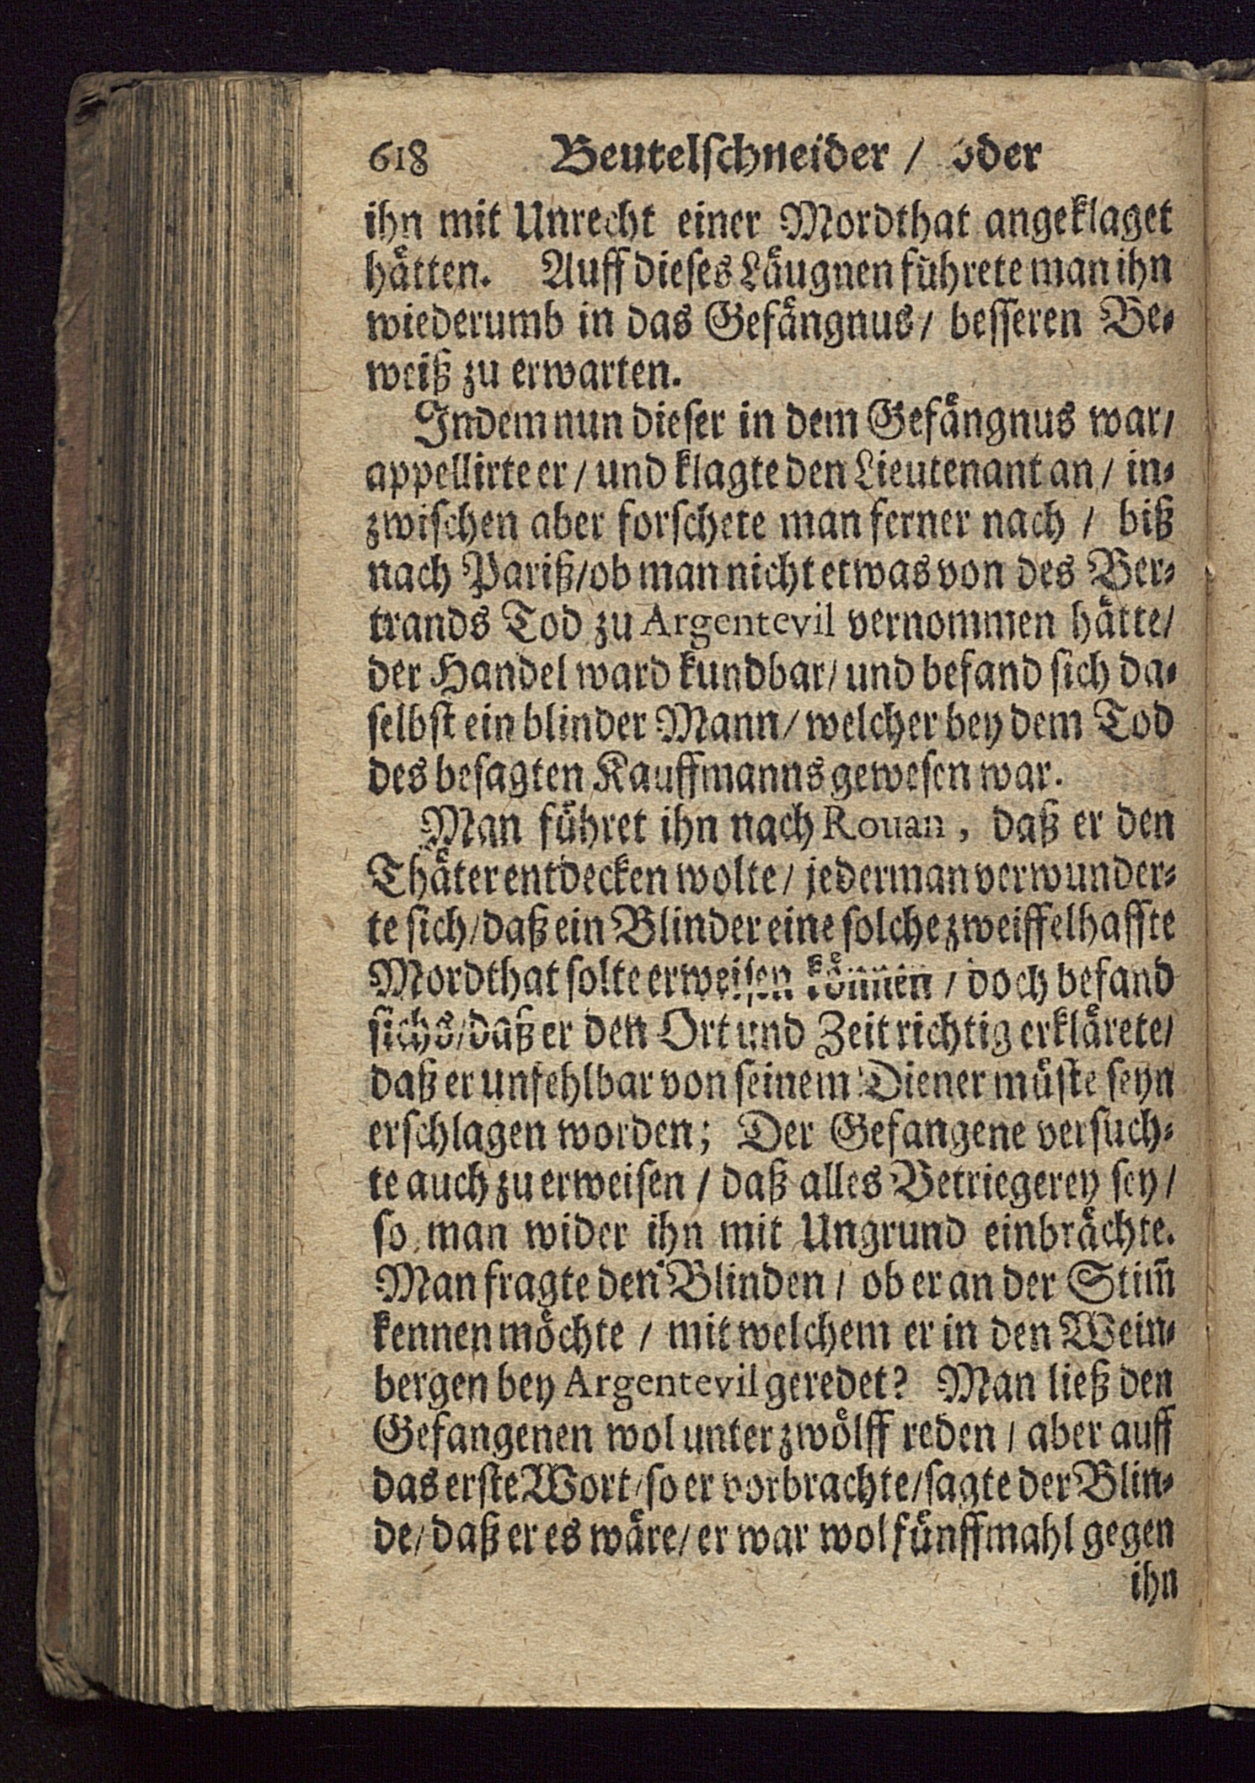 618 Beutelschneider / oder
ihn mit Unrecht einer Mordthat angeklaget
hätten. Auff dieses Läugnen führete man ihn
wiederumb in das Gefängnus / besseren Be-
weiß zu erwarten.
Indem nun dieser in dem Gefängnus war /
appellirte er / und klagte den Lieutenant an / in-
zwischen aber forschete man ferner nach / biß
nach Pariß / ob man nicht etwas von des Ber-
trands Tod zu Argentevil vernommen hätte /
der Handel ward kundbar / und befand sich da-
selbst ein blinder Mann / welcher bey dem Tod
des besagten Kauffmanns gewesen war.
Man führet ihn nach Rouan, daß er den
Thäter entdecken wolte / jederman verwunder-
te sich / daß ein Blinder eine solche zweiffelhaffte
Mordthat solte erweisen können / doch befand
sichs / daß er den Ort und Zeit richtig erklärete /
daß er unfehlbar von seinem Diener müste seyn
erschlagen worden; Der Gefangene versuch-
te auch zu erweisen / daß alles Betriegerey sey /
so man wider ihn mit Ungrund einbrächte.
Man fragte den Blinden / ob er an der Stim̃
kennen möchte / mit welchem er in den Wein-
bergen bey Argentevil geredet? Man ließ den
Gefangenen wol unter zwölff reden / aber auff
das erste Wort / so er vorbrachte / sagte der Blin-
de / daß er es wäre / er war wol fünffmahl gegen
ihn